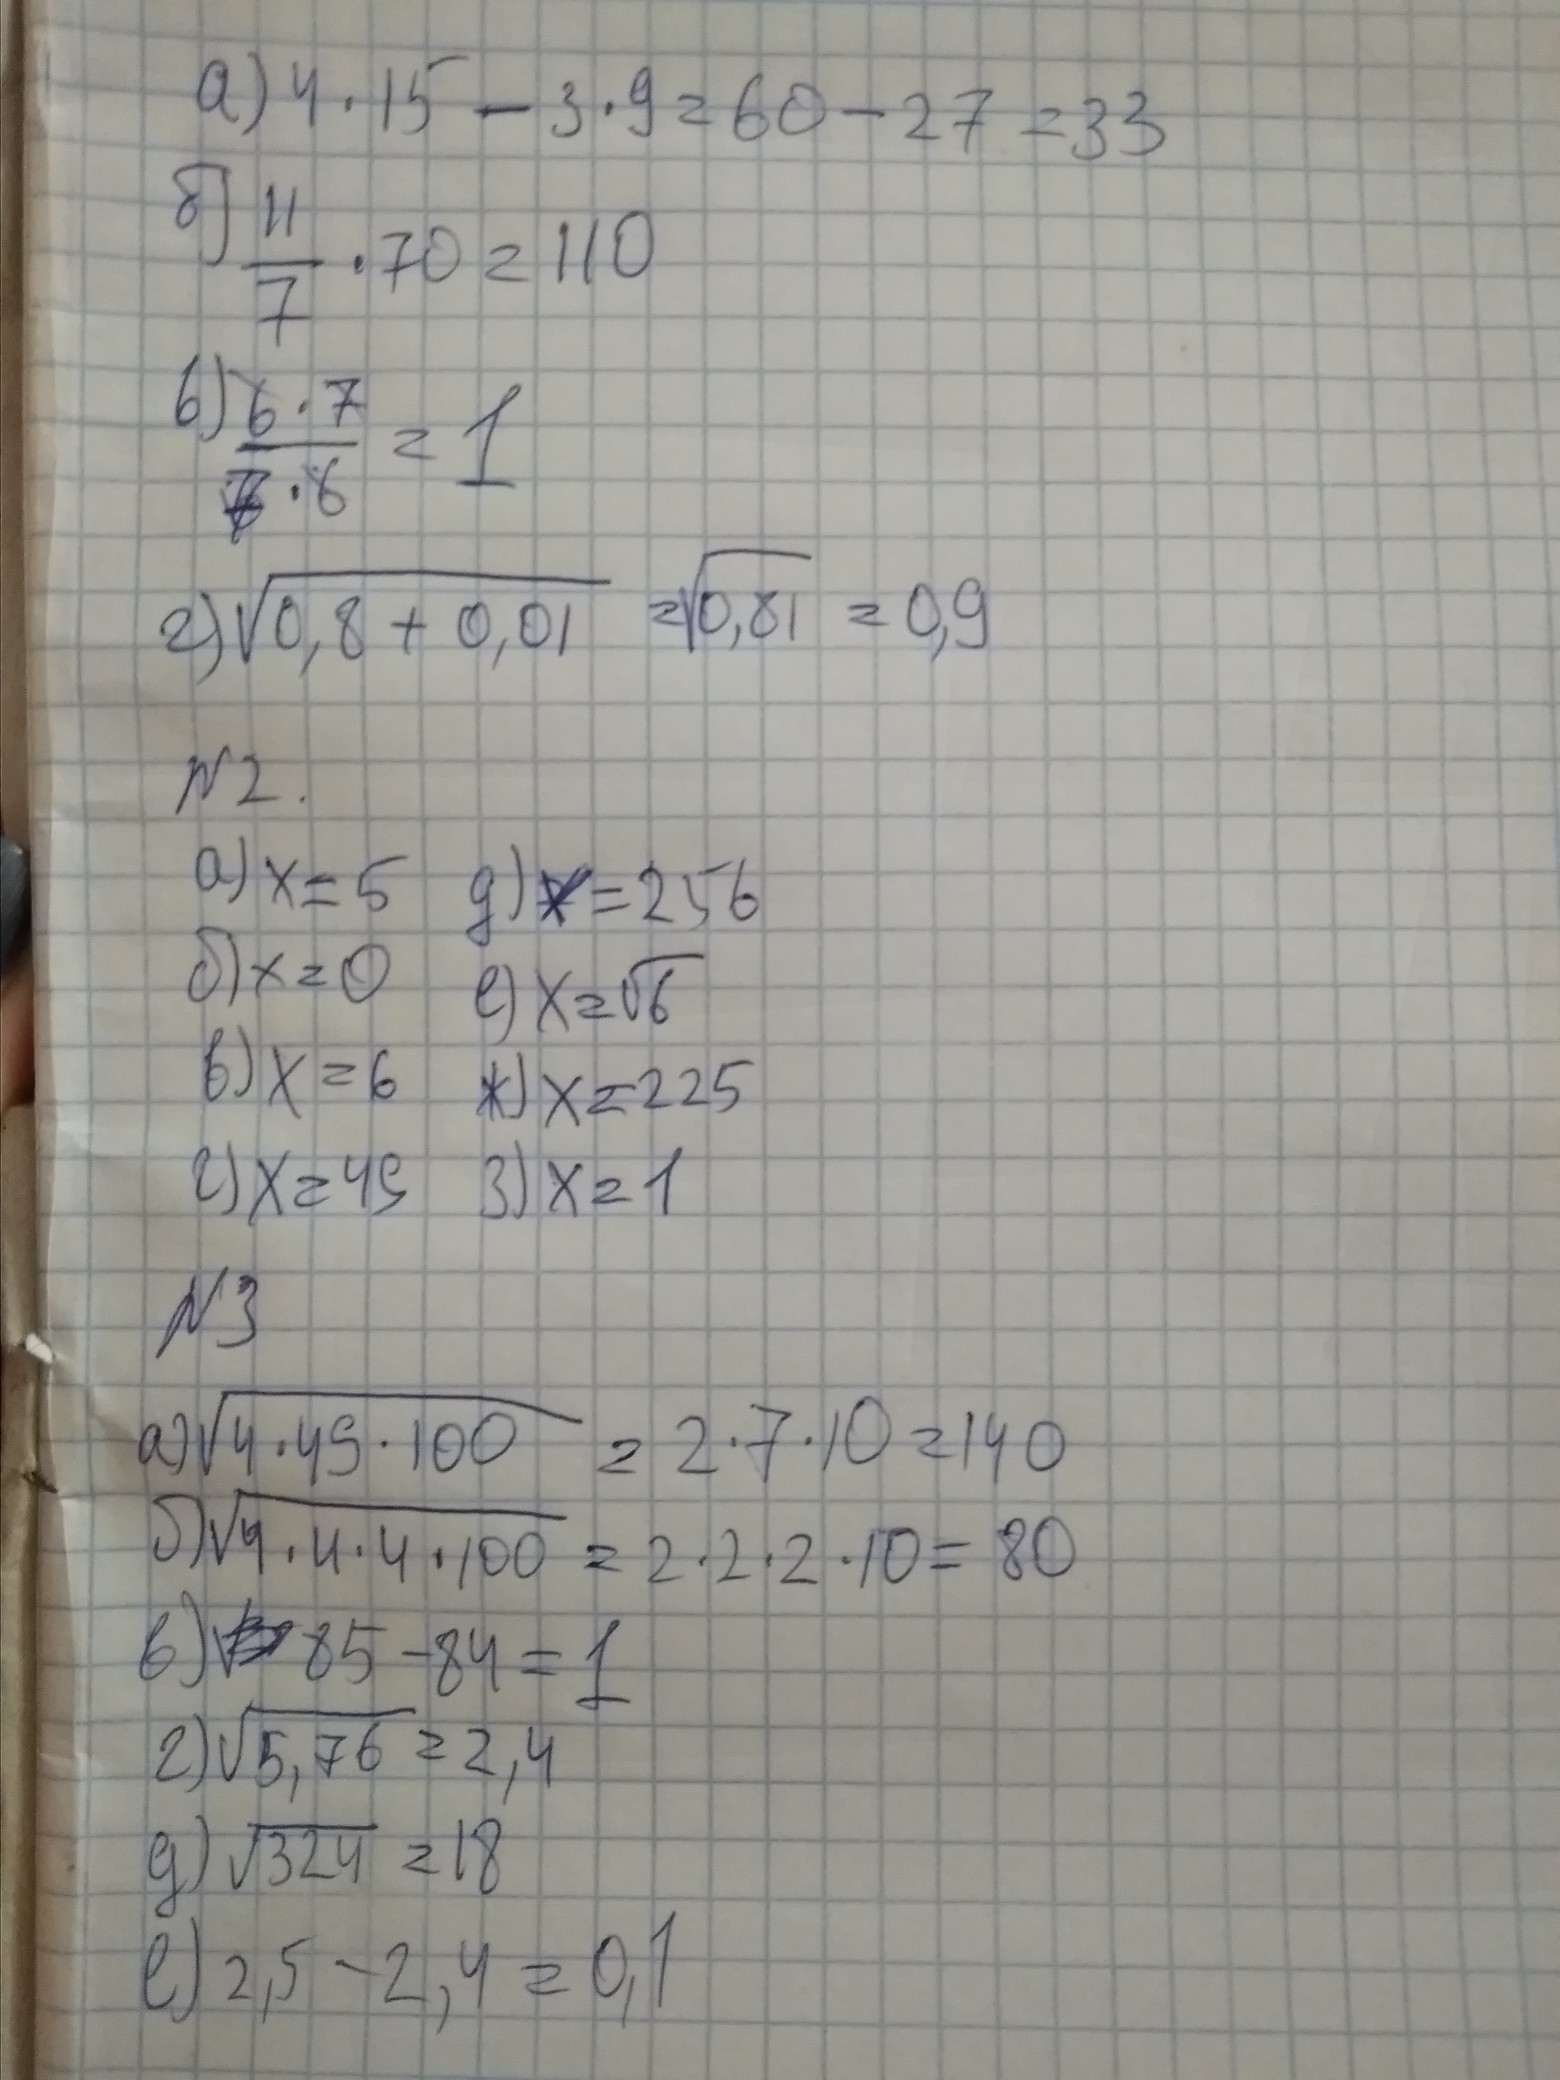 а) 4·15 - 3·9 = 60 - 27 = 33
б) 11/7 · 70 = 110
в) 6·7/7·6 = 1
г) √0,8 + 0,01 = √0,81 = 0,9
N2.
а) x = 5 д) x = 256
б) x = 0 е) x = √6
в) x = 6 ж) x = 225
г) x = 49 з) x = 1
N3
а) √4·49·100 = 2·7·10 = 140
б) √4·4·4·100 = 2·2·2·10 = 80
в) 85 - 84 = 1
г) √5,76 = 2,4
д) √324 = 18
е) 2,5 - 2,4 = 0,1